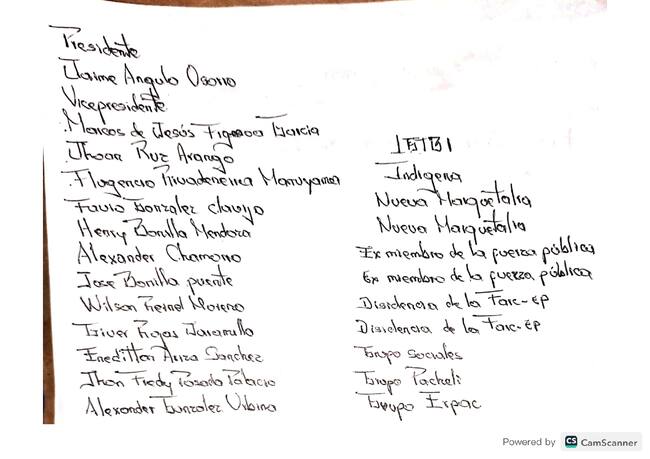 Presidente
Jaime Angulo Osorio
Vicepresidente
.Marcos de Jesús Figueroa García
.Jhoan Ruz Arango
.Flugencio Rivadeneira Marruyama
Favio González clavijo
Henry Bonilla Mendoza
Alexander Chamorro
Jose Bonilla puente
Wilson Reinel Moreno
Giver Rojas Jaramillo
Ariza Sanchez
Jhon Fredy Posada Palacio
Alexander Gonzalez Urbina
Indigena
Nueva Marquetalia
Nueva Marquetalia
Ex miembro de la fuerza pública
Ex miembro de la fuerza pública
Disidencia de la Farc-EP
Disidencia de la Farc-EP
Grupo Sociales
Grupo Pacheli
Grupo Erpac
Powered by CS CamScanner